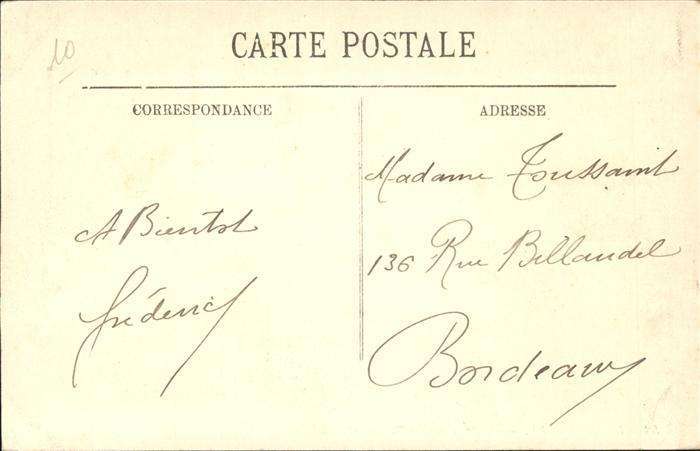 10
CARTE POSTALE
CORRESPONDANCE
ADRESSE
A Bientot
frédéric
Madame Toussaint
136 Rue Billaudel
Bordeaux